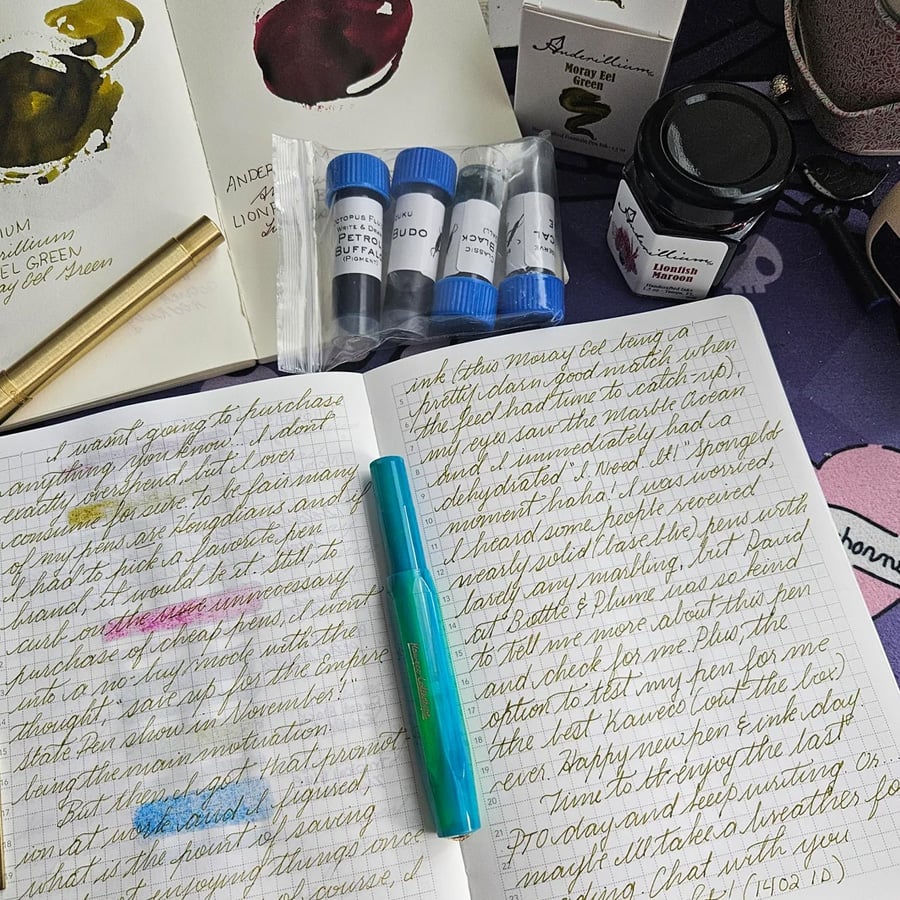 Anderillium
Moray Eel
Green
IUM
EEL GREEN
Moray Eel Green
ANDER
LION
OCTOPUS FLUIDS
WRITE & DRAW
PETROL
BUFFALO
(PIGMENT)
BUDO
CLASSIC
BLACK
Anderillium
Lionfish
Maroon
Handcrafted Inks
I wasn't going to purchase
anything, you know. I don't
exactly overspend, but I over
consume for sure. To be fair many
of my pens are Hongdians and if
I had to pick a favorite pen
brand, it would be it. Still, to
curb on the unnecessary
purchase of cheap pens, I went
into a no-buy mode with the
thought, "save up for the Empire
State Pen show in November!"
being the main motivation.
But then I got that promot-
ion at work and I figured,
what is the point of saving
enjoying things once
of course, I
ink (this Moray Eel being a
pretty darn good match when
the feed had time to catch-up),
my eyes saw the Marble Ocean
and I immediately had a
dehydrated "I. Need. It!" Spongebob
moment haha! I was worried,
I heard some people received
nearly solid (base blue) pens with
barely any marbling, but David
at Bottle & Plume was so kind
to tell me more about this pen
and check for me. Plus, the
option to test my pen for me
the best Kaweco (out the box)
ever. Happy new pen & ink day.
Time to enjoy the last
PTO day and keep writing. Or...
maybe I'll take a breather fo
ading. Chat with you
(1402 ID)